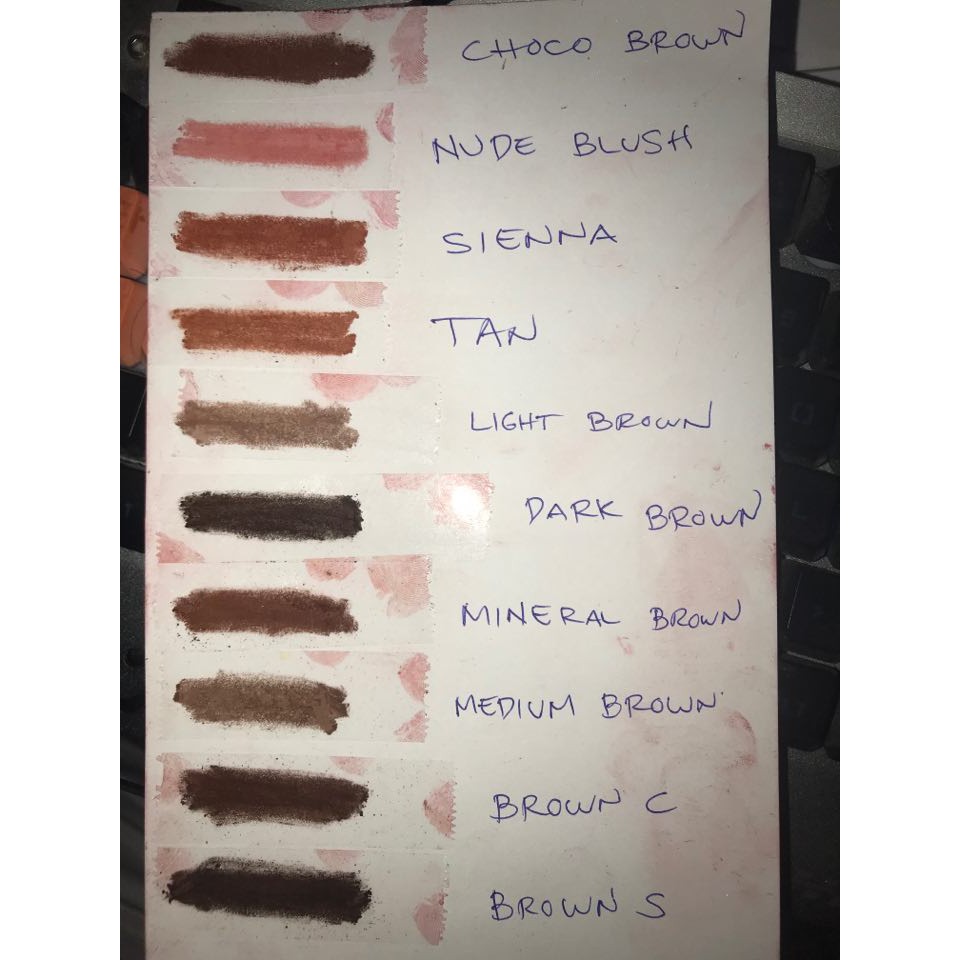 CHOCO BROWN
NUDE BLUSH
SIENNA
TAN
LIGHT BROWN
DARK BROWN
MINERAL BROWN
MEDIUM BROWN
BROWN C
BROWN S